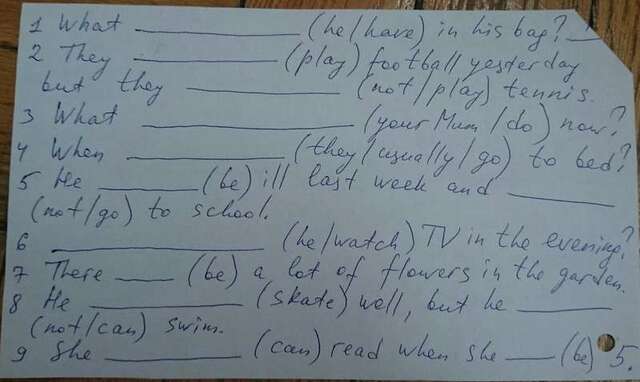 1 What ____________ (he/have) in his bag?
2 They ____________ (play) football yesterday
but they __________ (not/play) tennis.
3 What ______________ (your Mum/do) now?
4 When ____________ (they/usually/go) to bed?
5 He ________ (be) ill last week and ________
(not/go) to school.
6 ________________ (he/watch) TV in the evening?
7 There ____ (be) a lot of flowers in the garden.
8 He __________ (skate) well, but he ________
(not/can) swim.
9 She __________ (can) read when she ____ (be) 5.